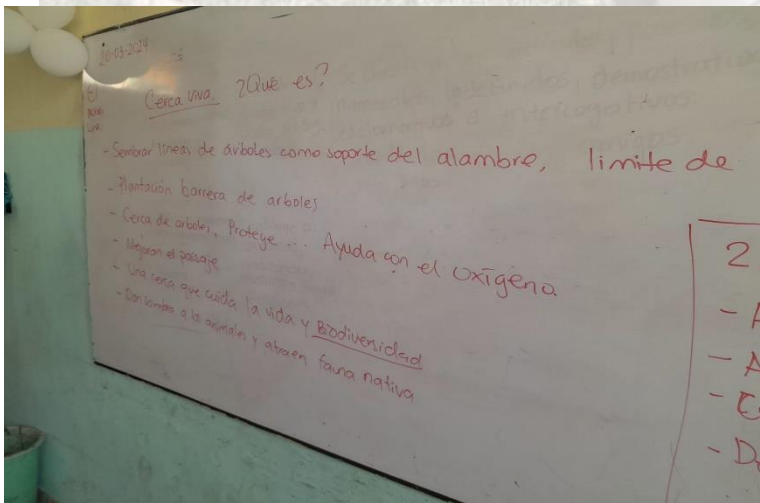 20-03-2024
Cerca viva. ¿Qué es?
- Sembrar líneas de árboles como soporte del alambre, limite de
- Plantación barrera de arboles
- Cerca de arboles, Protege... Ayuda con el oxígeno
- Mejoran el paisaje
- Una cerca que cuida la vida y Biodiversidad
- Dan sombra a los animales y atraen fauna nativa
2
- A
- A
-
- D